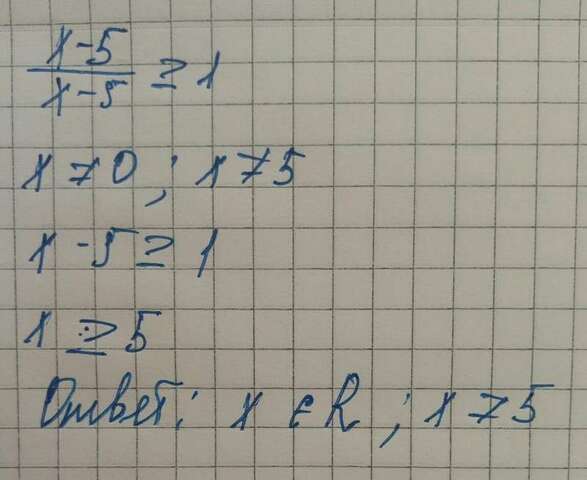 x-5/x-5 ≥ 1
x ≠ 0; x ≠ 5
x - 5 ≥ 1
x ≥ 5
Ответ: x ∈ R; x ≠ 5